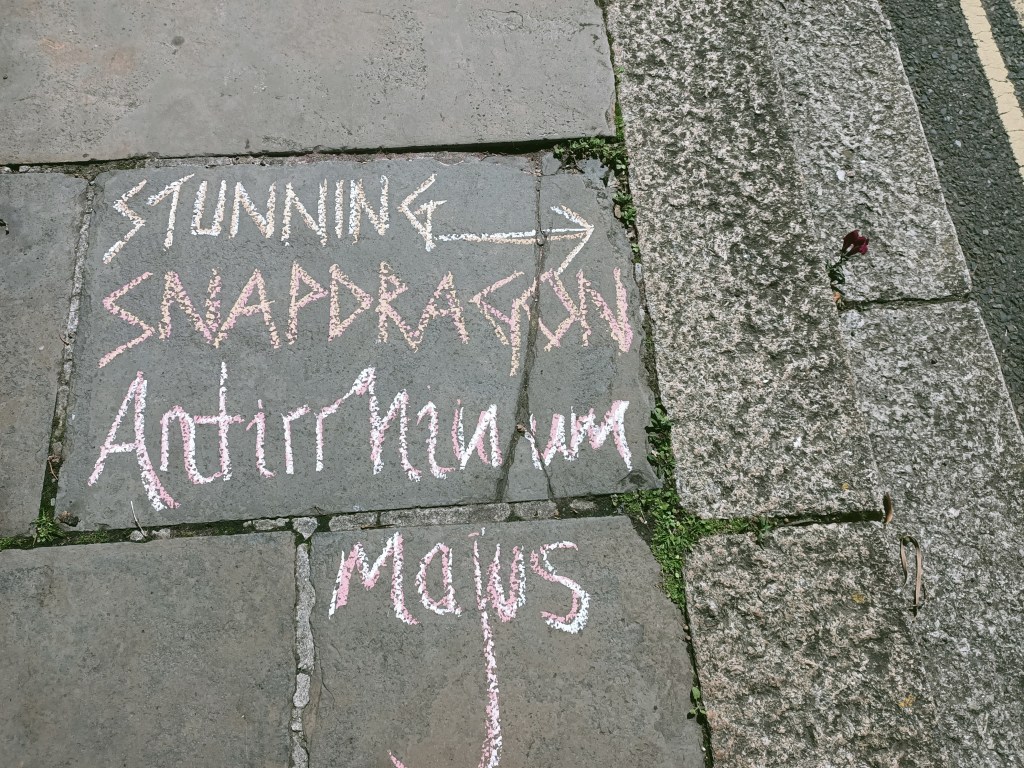 STUNNING →
SNAPDRAGON
Antirrhinum
Majus